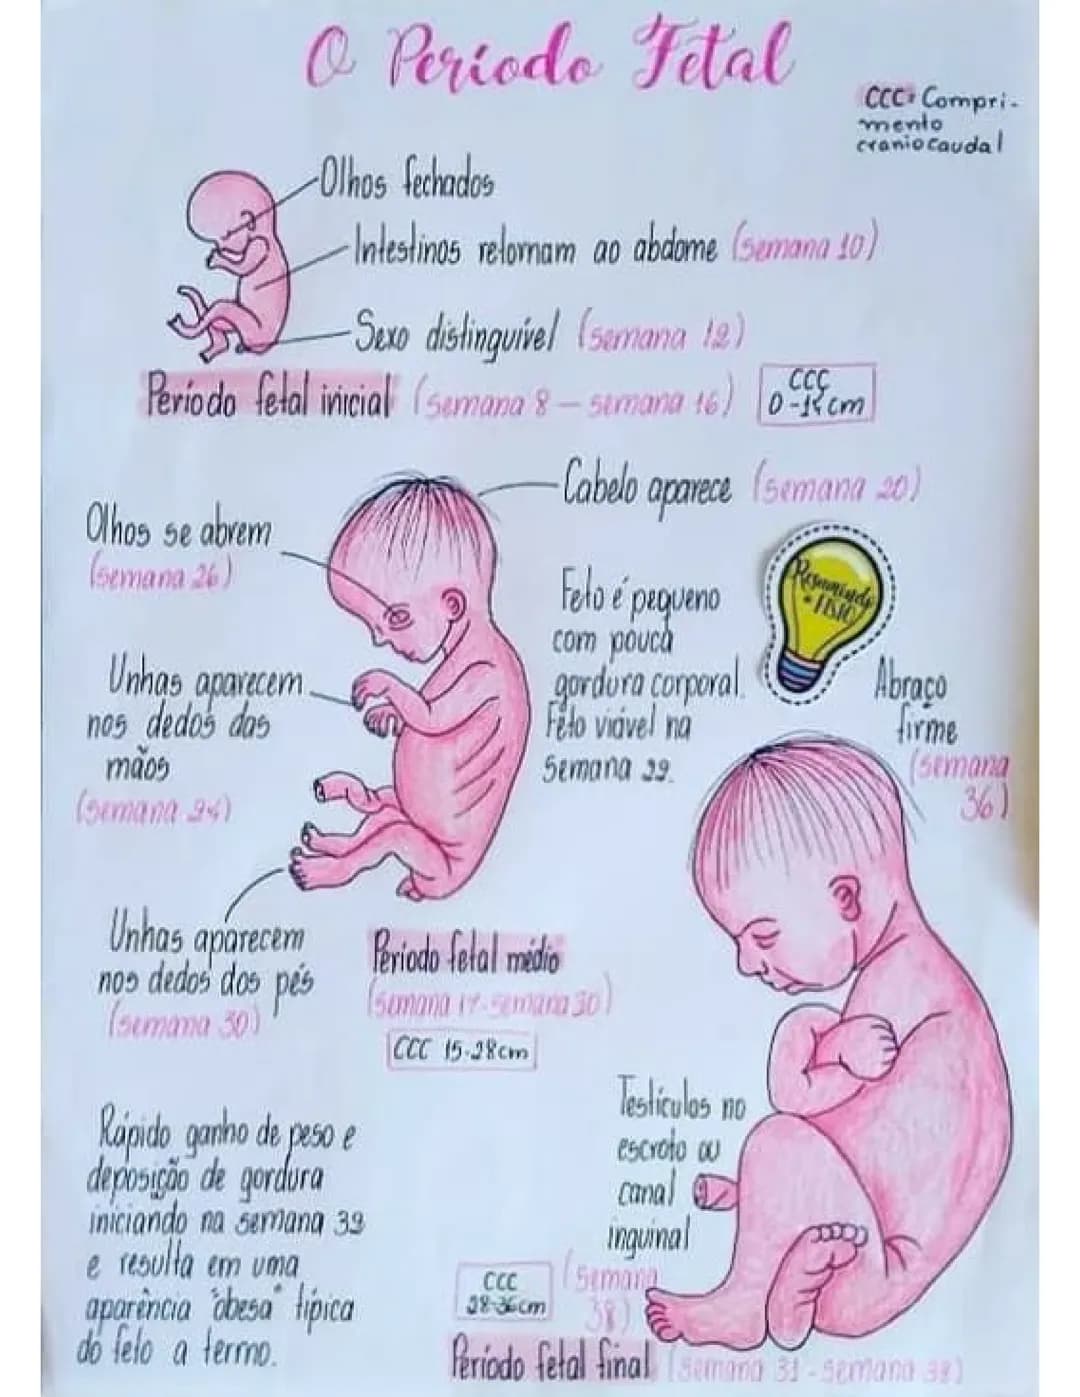 O Período Fetal
CCC: Compri-
mento
craniocaudal
Olhos fechados
Intestinos retornam ao abdome (semana 10)
Sexo distinguível (semana 12)
Período fetal inicial (semana 8 - semana 16)
CCC
0-15cm
Cabelo aparece (semana 20)
Olhos se abrem
(semana 26)
Feto é pequeno
com pouca
gordura corporal.
Feto viável na
semana 22.
Resumindo
a FISIO
Unhas aparecem
nos dedos das
mãos
(semana 24)
Abraço
firme
(semana
36)
Unhas aparecem
nos dedos dos pés
(semana 30)
Período fetal médio
(semana 17-semana 30)
CCC 15-28cm
Rápido ganho de peso e
deposição de gordura
iniciando na semana 32
e resulta em uma
aparência "obesa" típica
do feto a termo.
Testículos no
escroto ou
canal
inguinal
(semana
38)
CCC
28-36cm
Período fetal final (semana 31-semana 38)